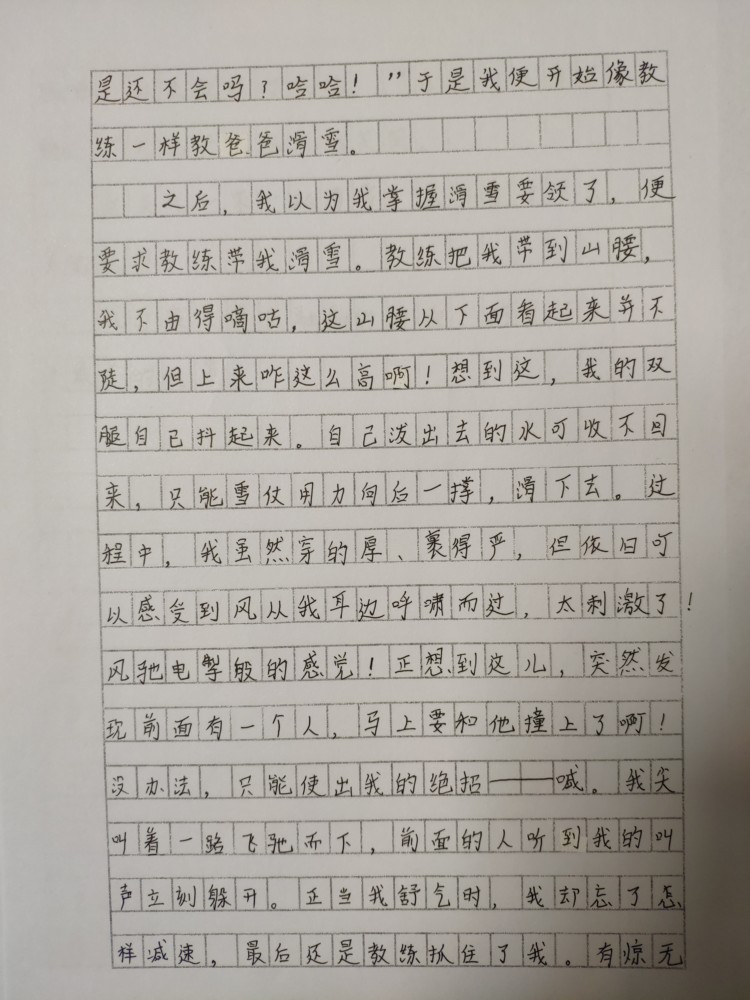 是还不会吗?哈哈!”于是我便开始像教
练一样教爸爸滑雪。
之后,我以为我掌握滑雪要领了,便
要求教练带我滑雪。教练把我带到山腰,
我不由得嘀咕,这山腰从下面看起来并不
陡,但上来咋这么高啊!想到这,我的双
腿自己抖起来。自己泼出去的水可收不回
来,只能雪仗用力向后一撑,滑下去。过
程中,我虽然穿的厚、裹得严,但依旧可
以感受到风从我耳边呼啸而过,太刺激了!
风驰电掣般的感觉!正想到这儿,突然发
现前面有一个人,马上要和他撞上了啊!
没办法,只能使出我的绝招——喊。我尖
叫着一路飞驰而下,前面的人听到我的叫
声立刻躲开。正当我舒气时,我却忘了怎
样减速,最后还是教练抓住了我。有惊无